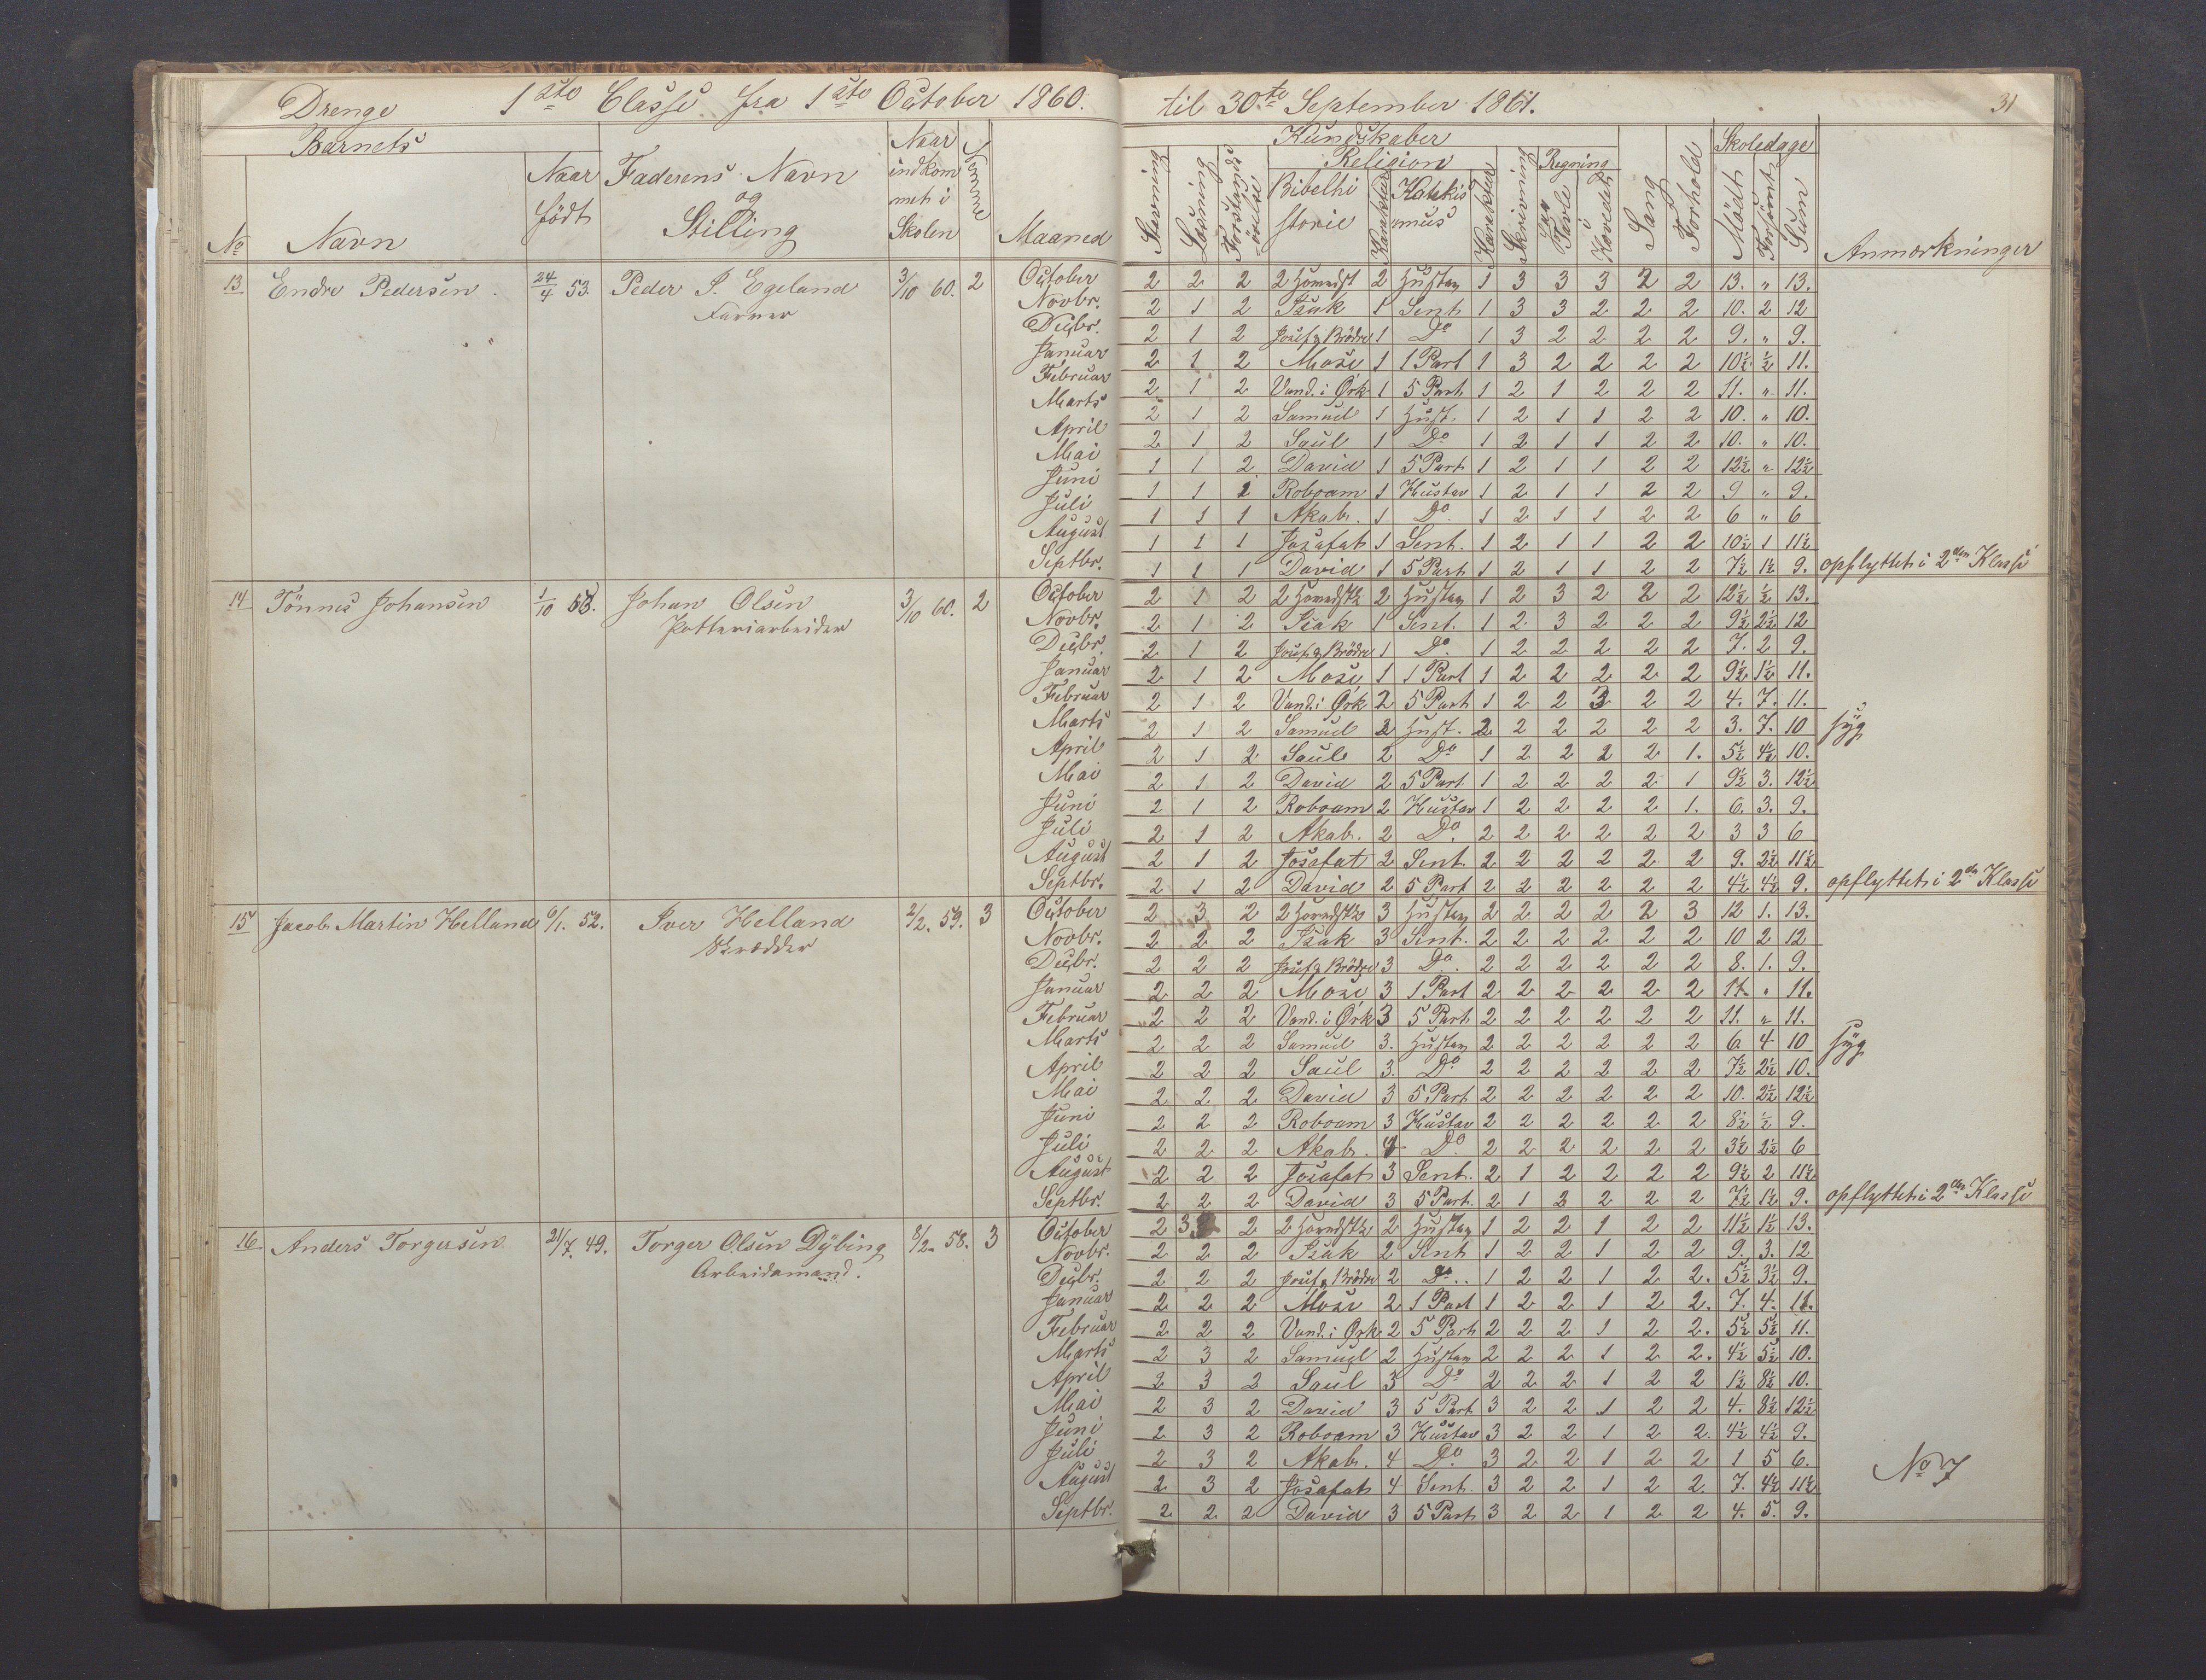 Drenge 1ste Classe fra 1ste October 1860. til 30te September 1861. 31
Barnets Naar Nemme Kundskaber Skoledage
No Navn Naar födt Faderens Navn og Stilling indkommet i Skolen Maaned Stavning Læsning Forstandsöielse Religion Bibelhistorie Karakter Katekismus Karakter Skrivning Regning paa Tavle i Hovedet Sang Forhold Mödt Forsömt Sum Anmærkninger
13 Endre Pedersen. 24/4 53. Peder P. Egeland 3/10 60. 2 October 2 2 2 2 Hovedst 2 Hustav 1 3 3 3 2 2 13. " 13.
Farver Novbr. 2 1 2 Isak 1 Sent 1 3 3 2 2 2 10. 2 12
Decbr. 2 1 2 Josef og Brödre 1 Do 1 3 2 2 2 2 9. " 9.
Januar 2 1 2 Mose 1 1 Part 1 3 2 2 2 2 10½ ½ 11.
Februar 2 1 2 Vand. i Ørk 1 5 Part 1 2 1 2 2 2 11. " 11.
Marts 2 1 2 Samuel 1 Hust. 1 2 1 1 2 2 10. " 10.
April 2 1 2 Saul 1 Do 1 2 1 1 2 2 10. " 10.
Mai 1 1 2 David 1 5 Part 1 2 1 1 2 2 12½ " 12½
Juni 1 1 1 Roboam 1 Hustav 1 2 1 1 2 2 9 " 9.
Juli 1 1 1 Akab. 1 Do. 1 2 1 1 2 2 6 " 6
August 1 1 1 Josafat 1 Sent. 1 2 1 1 2 2 10½ 1 11½
Septbr. 1 1 1 David 1 5 Part 1 2 1 1 2 2 7½ 1½ 9. opflyttet i 2den Klasse
14 Tönnes Johansen 1/10 53. Johan Olsen 3/10 60. 2 October 2 1 2 2 Hovedstk 2 Hustav 1 2 3 2 2 2 12½ ½ 13.
Potteriarbeider Novbr. 2 1 2 Isak 1 Sent. 1 2 3 2 2 2 9½ 2½ 12
Decbr. 2 1 2 Josef og Brödre 1 Do. 1 2 2 2 2 2 7. 2 9.
Januar 2 1 2 Mose 1 1 Part 1 2 2 2 2 2 9½ 1½ 11.
Februar 2 1 2 Vand. i Ørk 2 5 Part 1 2 2 2 2 2 4. 7. 11.
Marts 2 1 2 Samuel 2 Hust. 2 2 2 2 2 2 3. 7. 10 syg
April 2 1 2 Saul 2 Do 1 2 2 2 2 1. 5½ 4½ 10.
Mai 2 1 2 David 2 5 Part 1 2 2 2 2 1 9½ 3. 12½
Juni 2 1 2 Roboam 2 Hustav 1 2 2 2 2 1. 6. 3. 9.
Juli 2 1 2 Akab. 2 Do. 2 2 2 2 2 2 3 3 6
August 2 1 2 Josafat 2 Sent. 2 2 2 2 2 2 9. 2½ 11½
Septbr. 2 1 2 David 2 5 Part 2 2 2 2 2 2 4½ 4½ 9. opflyttet i 2den Klasse
15 Jacob Martin Helland 6/1. 52. Iver Helland 2/2. 59. 3 October 2 3 2 2 Hovedstk 3 Hustav 2 2 2 2 2 3 12 1. 13.
Skrædder Novbr. 2 2 2 Isak 3 Sent. 2 2 2 2 2 2 10 2 12
Decbr. 2 2 2 Josef og Brödre 3 Do. 2 2 2 2 2 2 8. 1. 9.
Januar 2 2 2 Mose 3 1 Part 2 2 2 2 2 2 11. " 11.
Februar 2 2 2 Vand. i Ørk 3 5 Part 2 2 2 2 2 2 11. " 11.
Marts 2 2 2 Samuel 3. Hustav 2 2 2 2 2 2 6 4 10 syg
April 2 2 2 Saul 3. Do 2 2 2 2 2 2 7½ 2½ 10.
Mai 2 2 2 David 3 5 Part 2 2 2 2 2 2 10. 2½ 12½
Juni 2 2 2 Roboam 3 Hustav 2 2 2 2 2 2 8½ ½ 9.
Juli 2 2 2 Akab. 4 Do. 2 2 2 2 2 2 3½ 2½ 6
August 2 2 2 Josafat 3 Sent. 2 1 2 2 2 2 9½ 2 11½
Septbr. 2 2 2 David 3 5 Part. 2 1 2 2 2 2 7½ 1½ 9. opflyttet i 2den Klasse
16 Anders Torgersen 21/7. 49. Torger Olsen Dybing 8/2. 58. 3 October 2 3 2 2 Hovedstk 2 Hustav 1 2 2 1 2 2 11½ 1½ 13.
Arbeidsmand. Novbr. 2 2 2 Isak 2 Sent 1 2 2 1 2 2 9. 3. 12
Decbr. 2 2 2 Josef og Brödre 2 Do.. 1 2 2 1 2 2. 5½ 3½ 9.
Januar 2 2 2 Mose 2 1 Part 1 2 2 1 2 2. 7. 4. 11.
Februar 2 2 2 Vand. i Ørk 2 5 Part 2 2 2 1 2 2. 5½ 5½ 11.
Marts 2 3 2 Samuel 2 Hustav 2 2 2 1 2 2. 4½ 5½ 10.
April 2 3 2 Saul 3 Do 2 2 2 1 2 2 1½ 8½ 10.
Mai 2 3 2 David 3 5 Part 3 2 2 1 2 2 4. 8½ 12½
Juni 2 3 2 Roboam 3 Hustav 3 2 2 1 2 2. 4½ 4½ 9.
Juli 2 3 2 Akab. 4 Do. 3 2 2 1 2 2 1 5 6. No 7
August 2 3 2 Josafat 4 Sent. 3 2 2 1 2 2. 7. 4½ 11½
Septbr. 2 2 2 David 3 5 Part 3 2 2 1 2 2 4. 5. 9.